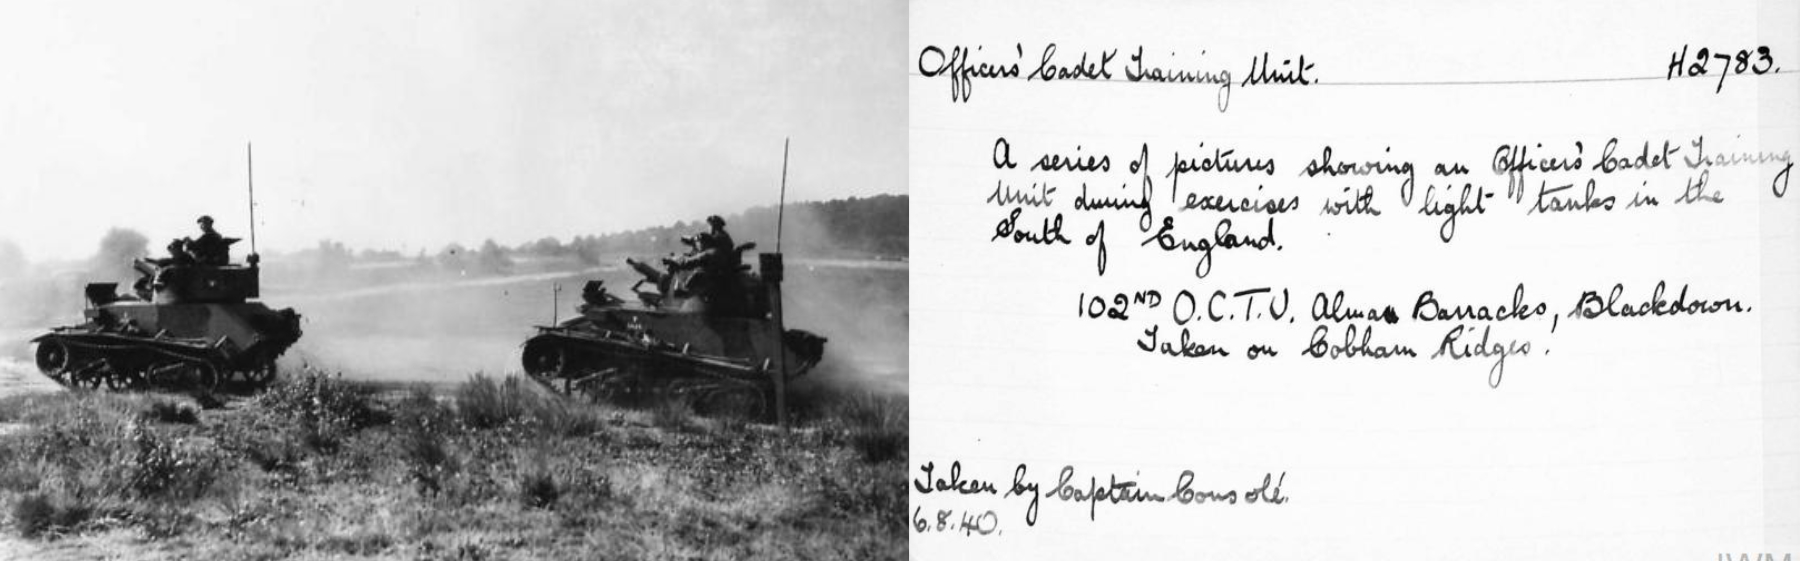 Officers' Cadet Training Unit. H2783.
A series of pictures showing an Officers' Cadet Training
Unit during exercises with light tanks in the
South of England.
102ND O.C.T.U. Alma Barracks, Blackdown.
Taken on Cobham Ridges.
Taken by Captain Consolé.
6.8.40.
IWM